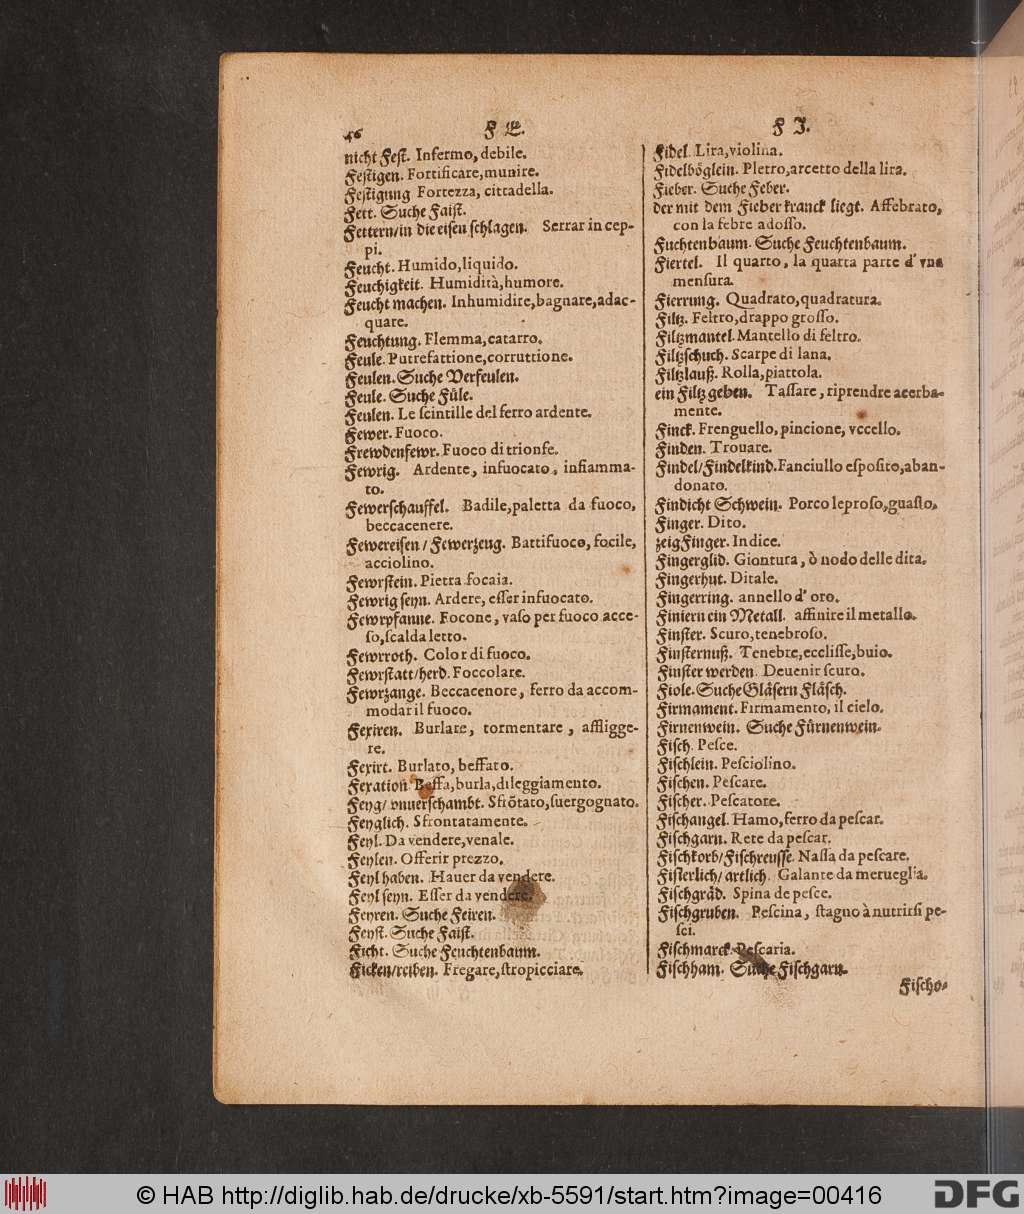 46
F E.
nicht Fest. Infermo, debile.
Festigen. Fortificare, munire.
Festigung Fortezza, cittadella.
Fett. Suche Faist.
Fettern/in die eisen schlagen. Serrar in cep-
pi.
Feucht. Humido, liquido.
Feuchigkeit. Humidità, humore.
Feucht machen. Inhumidire, bagnare, adac-
quare.
Feuchtung. Flemma, catarro.
Feule. Putrefattione, corruttione.
Feulen. Suche Verfeulen.
Feule. Suche Füle.
Feulen. Le scintille del ferro ardente.
Fewer. Fuoco.
Frewdenfewr. Fuoco di trionfe.
Fewrig. Ardente, infuocato, infiamma-
to.
Fewerschauffel. Badile, paletta da fuoco,
beccacenere.
Fewereisen / Fewerzeug. Battifuoco, focile,
acciolino.
Fewrstein. Pietra focaia.
Fewrig seyn. Ardere, esser infuocato.
Fewrpfanne. Focone, vaso per fuoco acce-
so, scalda letto.
Fewrroth. Color di fuoco.
Fewrstatt/herd. Foccolare.
Fewrzange. Beccacenore, ferro da accom-
modar il fuoco.
Fexiren. Burlare, tormentare, affligge-
re.
Fexirt. Burlato, beffato.
Fexation Beffa, burla, dileggiamento.
Feyg/ vnuerschambt. Sfrõtato, suergognato.
Feyglich. Sfrontatamente.
Feyl. Da vendere, venale.
Feylen. Offerir prezzo.
Feyl haben. Hauer da vendere.
Feyl seyn. Esser da vendere.
Feyren. Suche Feiren.
Feyst. Suche Faist.
Ficht. Suche Feuchtenbaum.
Ficken/reiben. Fregare, stropicciare.
F I.
Fidel. Lira, violina.
Fidelböglein. Pletro, arcetto della lira.
Fieber. Suche Feber.
der mit dem Fieber kranck liegt. Affebrato,
con la febre adosso.
Fuchtenbaum. Suche Feuchtenbaum.
Fiertel. Il quarto, la quarta parte d' vna
mensura.
Fierrung. Quadrato, quadratura.
Filtz. Feltro, drappo grosso.
Filtzmantel. Mantello di feltro.
Filtzschuch. Scarpe di lana.
Filtzlauß. Rolla, piattola.
ein Filtz geben. Tassare, riprendre acerba-
mente.
Finck. Frenguello, pincione, vccello.
Finden. Trouare.
Findel/Findelkind. Fanciullo esposito, aban-
donato.
Findicht Schwein. Porco leproso, guasto.
Finger. Dito.
zeigFinger. Indice.
Fingerglid. Giontura, ò nodo delle dita.
Fingerhut. Ditale.
Fingerring. annello d' oro.
Finiern ein Metall. affinire il metallo.
Finster. Scuro, tenebroso.
Finsternuß. Tenebre, ecclisse, buio.
Finster werden. Deuenir scuro.
Fiole. Suche Gläsern Fläsch.
Firmament. Firmamento, il cielo.
Firnenwein. Suche Fürnenwein.
Fisch. Pesce.
Fischlein. Pesciolino.
Fischen. Pescare.
Fischer. Pescatore.
Fischangel. Hamo, ferro da pescar.
Fischgarn. Rete da pescar.
Fischkorb/Fischreusse. Nassa da pescare.
Fisterlich/ artlich. Galante da merueglia.
Fischgräd. Spina de pesce.
Fischgruben. Pescina, stagno à nutrirsi pe-
sci.
Fischmarck. Pescaria.
Fischham. Suche Fischgarn.
Fischo-
© HAB http://diglib.hab.de/drucke/xb-5591/start.htm?image=00416
DFG